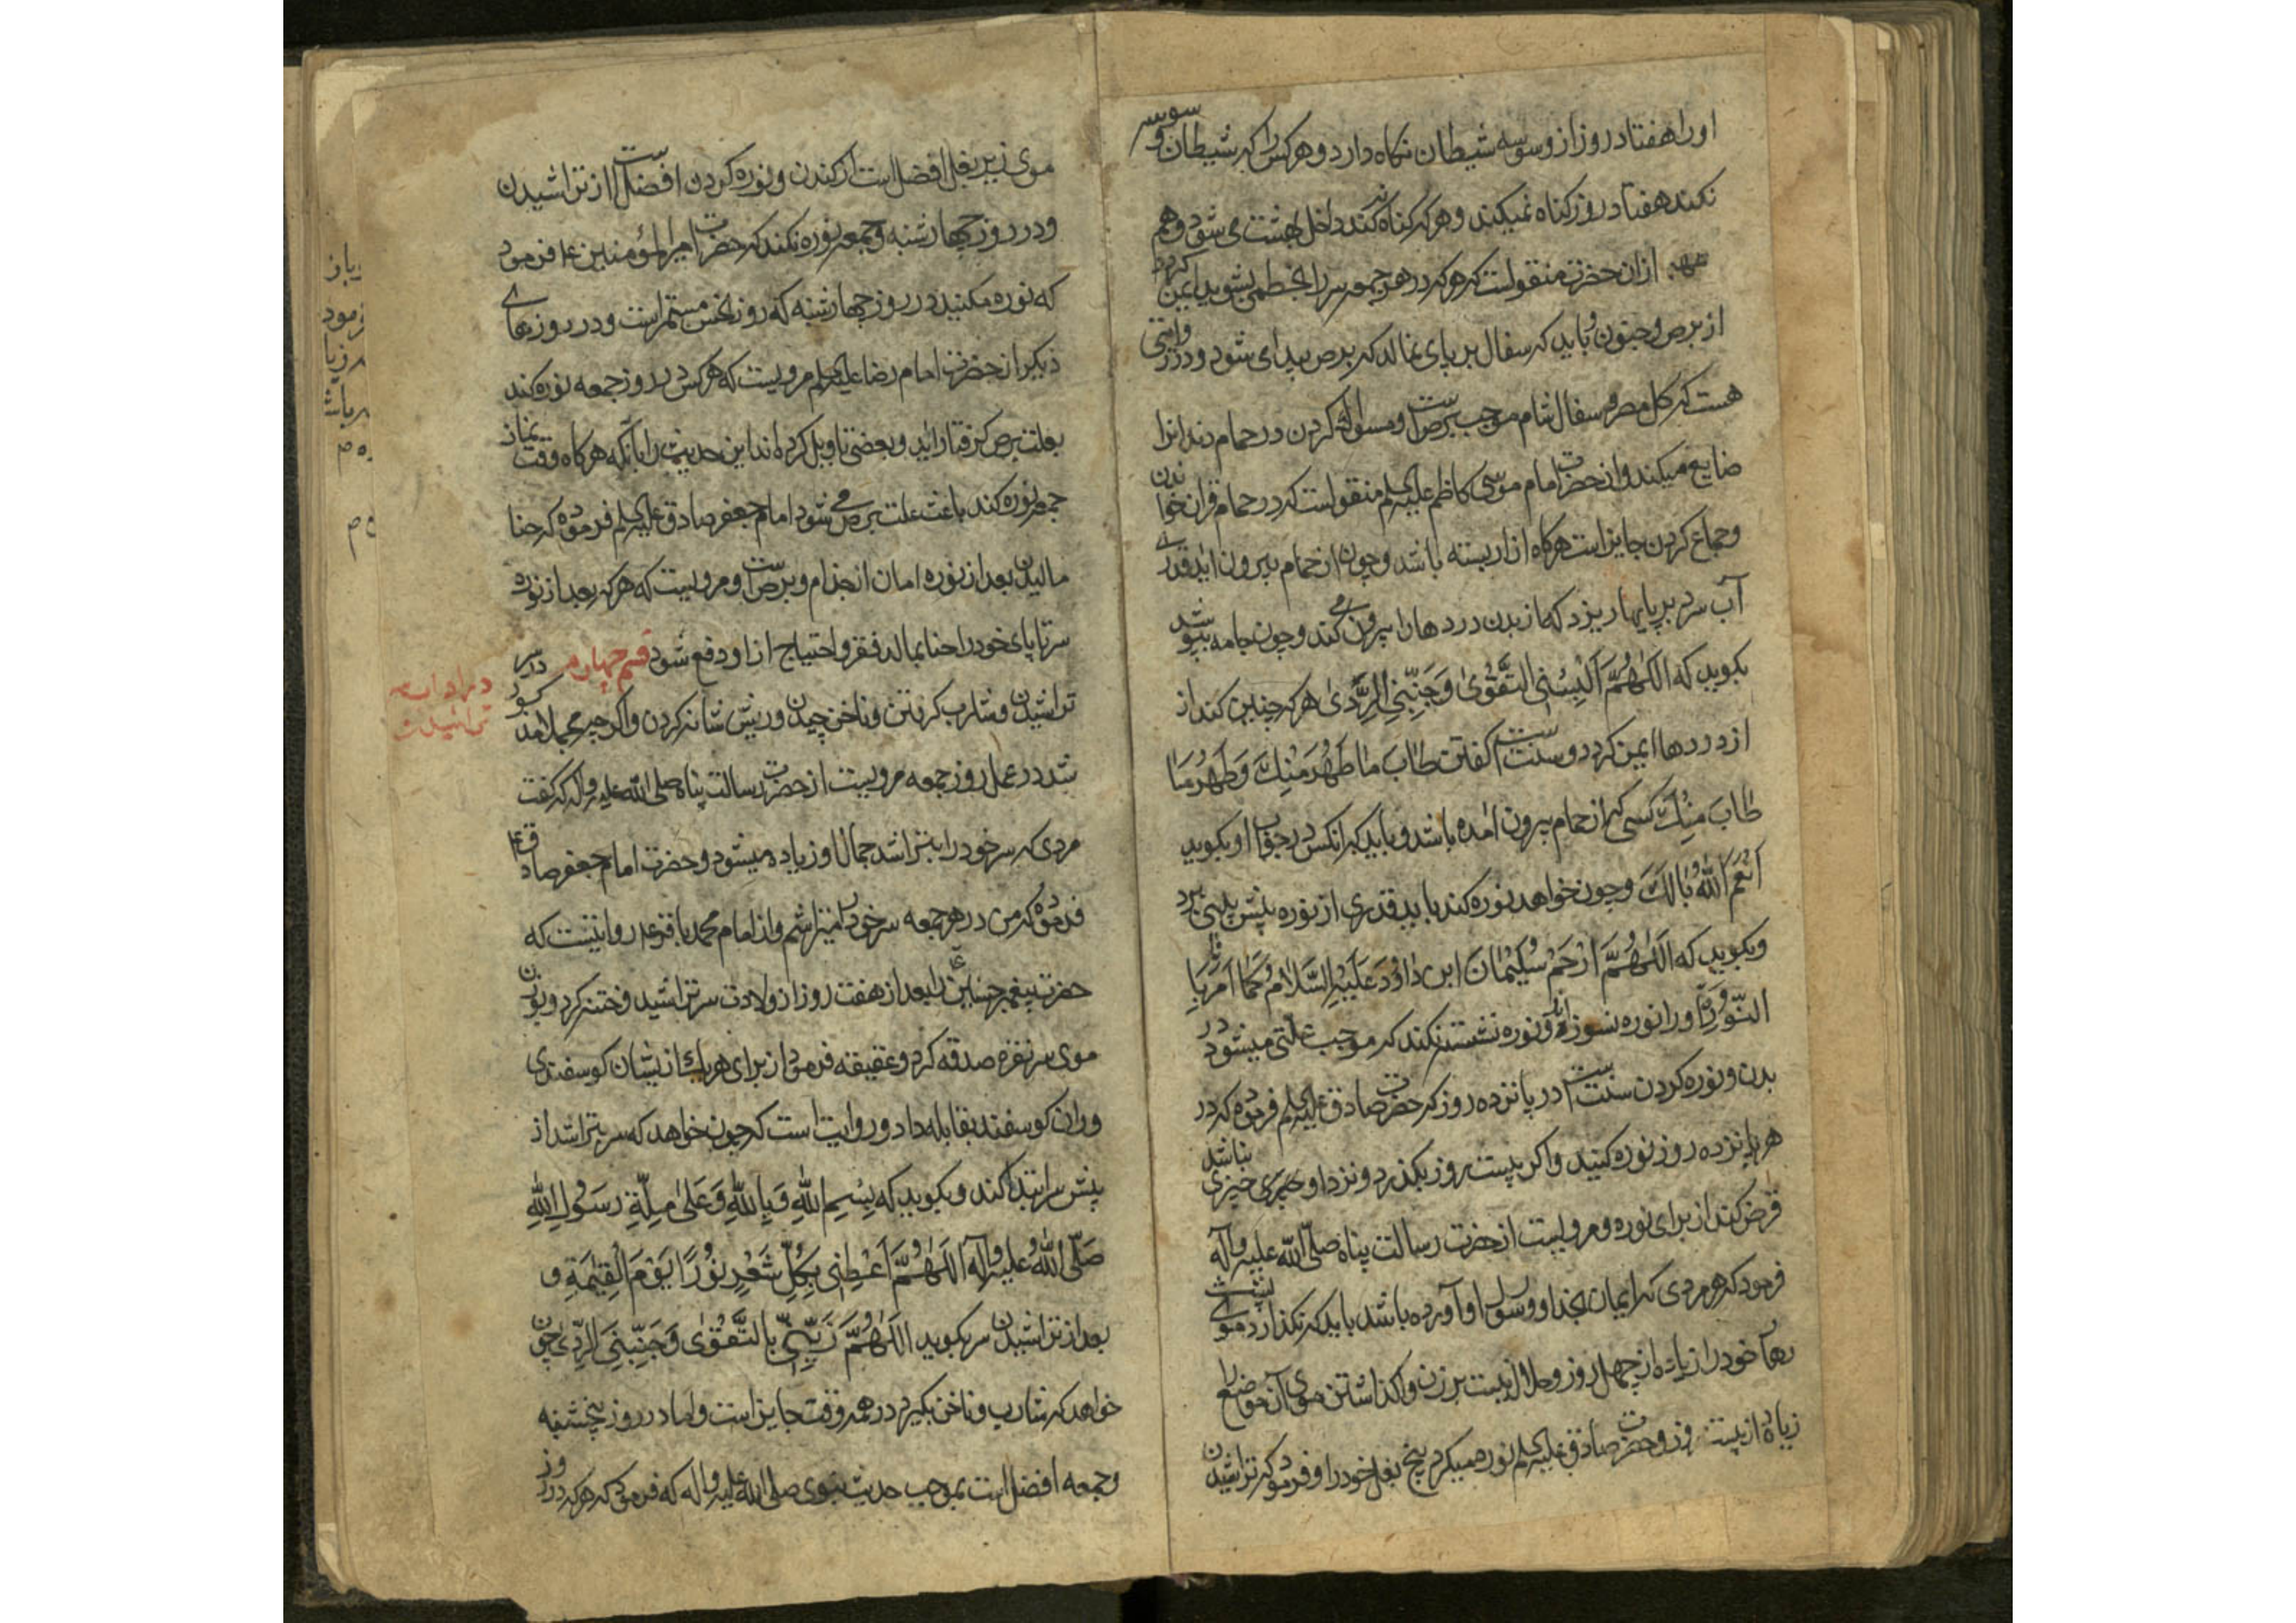 او را هفتاد روز از وسوسه شیطان نکاه دارد و هرکس را که شیطان وسوسه
نکند هفتاد روز کناه نمیکند و هرکه کناه نکند داخل بهشت می شود و هم
ازان حضرت منقولست که هرکه در هر جمعه سر را بخطمی بشوید ایمن کردد
از برص و جنون و باید که سفال بر پای نمالد که برص پیدا می شود و در روایتی
هست که کل مصر و سفال شام موجب برص است و مسواک کردن در حمام دندانرا
ضایع میکند و از حضرت امام موسی کاظم علیه السلم منقولست که در حمام قران خواندن
و جماع کردن جایز است هرکاه ازار بسته باشد و چون از حمام بیرون اید قدری
آب سرد بر پایها ریزد که از بدن دردها را بیرون می کند و چون جامه بپوشد
بکوید که اَللّٰهُمَّ اَلْبِسْنِی التَّقْوٰی وَ جَنِّبْنِی الرَّدٰی هرکه چنین کند از
از دردها ایمن کردد و سنت است کفتن طَابَ مَا طَهُرَ مِنْكَ وَ طَهُرَ مَا
طَابَ مِنْكَ کسی که از حمام بیرون امده باشد و باید که انکس در جواب او بکوید
اَنْعَمَ اللّٰهُ بَالَكَ و چون خواهد نوره کند باید قدری از نوره پیش بینی برد
و بکوید که اَللّٰهُمَّ ارْحَمْ سُلَیْمَانَ ابْنَ دَاوُدَ عَلَیْهِ السَّلَامُ کَمَا اَمَرَنَا
بِالنُّوْرَةِ او را نوره نسوزاند و نوره نشسته نکند که موجب علتی میشود در
بدن و نوره کردن سنت است در پانزده روز که حضرت صادق علیه السلم فرموده که در
هر پانزده روز نوره کنید و اکر بیست روز بکذرد و نزد او چیزی نباشد
قرض کند از برای نوره و مرویست از حضرت رسالت پناه صلّی اللّٰه علیه و آله
فرمود که هر مردی که ایمان بخدا و رسول او آورده باشد باید که نکذارد موی پشت
زهار خود را زیاده از چهل روز و حلال نیست بر زن واکذاشتن موی آن موضع را
زیاده از بیست روز و حضرت صادق علیه السلم نوره میکرد بیخ بغل خود را و فرمود که تراشیدن
موی زیر بغل افضل است از کندن و نوره کردن افضل است از تراشیدن
و در روز چهارشنبه و جمعه نوره نکند که حضرت امیرالمؤمنین ع فرمود
که نوره مکنید در روز چهارشنبه که روز نحس مستمر است و در روزهای
دیکر از حضرت امام رضا علیه السلم مرویست که هرکس در روز جمعه نوره کند
بعلت برص کرفتار اید و بعضی تاویل کرده اند این حدیث را بآنکه هرکاه وقت نماز
جمعه نوره کند باعث علت برص می شود امام جعفر صادق علیه السلم فرموده که حنا
مالیدن بعد از نوره امان از جذام و برص است و مرویست که هرکه بعد از نوره
سر تا پای خود را حنا بمالد فقر و احتیاج از او دفع شود قسم چهارم در سر
تراشیدن و شارب کرفتن و ناخن چیدن و ریش شانه کردن و اکرچه مجملا مذکور
شد در عمل روز جمعه مرویست از حضرت رسالت پناه صلی اللّٰه علیه و اله که کفت
مردی که سر خود را بتراشد جمال او زیاده میشود و حضرت امام جعفر صادق ع
فرموده که من در هر جمعه سر خود را میتراشم و از امام محمد باقر ع روایتست که
حضرت پیغمبر حسنین ع را بعد از هفت روز از ولادت سر تراشید و ختنه کرد و بوزن
موی سر نقره صدقه کرد و عقیقه فرمود از برای هر یك از یشان کوسفندی
و ران کوسفند بقابله داد و روایت است که چون خواهد که سر بتراشد از
پیش سر ابتدا کند و بکوید که بِسْمِ اللّٰهِ وَ بِاللّٰهِ وَ عَلٰی مِلَّةِ رَسُولِ اللّٰهِ
صَلَّی اللّٰهُ عَلَیْهِ وَ آلِهِ اَللّٰهُمَّ اَعْطِنِی بِکُلِّ شَعْرٍ نُوْرًا یَوْمَ الْقِیٰمَةِ و
بعد از تراشیدن سر بکوید اَللّٰهُمَّ زَیِّنِّی بِالتَّقْوٰی وَ جَنِّبْنِی الرَّدٰی چون
خواهد که شارب و ناخن بکیرد در همه وقت جایز است و اما در روز پنجشنبه
و جمعه افضل است بموجب حدیث نبوی صلی اللّٰه علیه و اله که فرمود که هرکه در روز